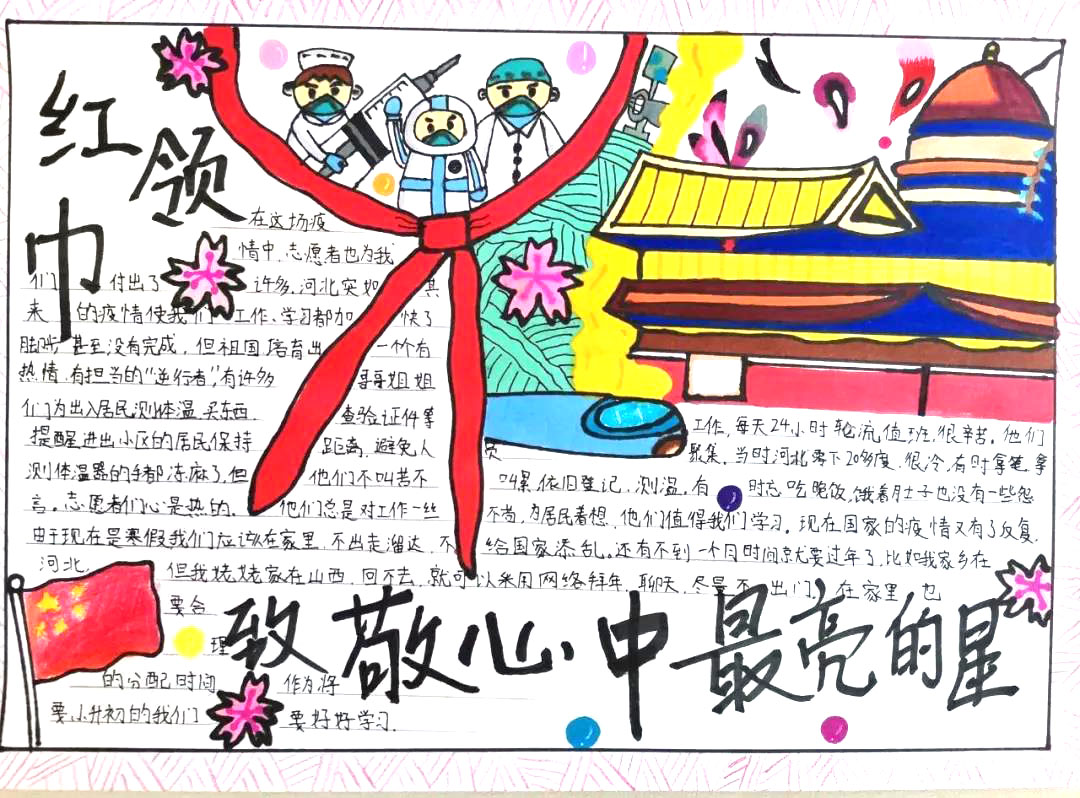 红领巾
在这场疫
情中,志愿者也为我
们付出了许多,河北突如其
来的疫情使我们工作、学习都加快了
脚步,甚至没有完成,但祖国培育出一个有
热情,有担当的“逆行者”,有许多哥哥姐姐
们为出入居民测体温,买东西,查验证件等工作,每天24小时轮流值班,很辛苦。他们
提醒进出小区的居民保持距离,避免人员聚集,当时河北零下20多度,很冷,有时拿笔、拿
测体温器的手都冻麻了,但他们不叫苦不叫累,依旧登记、测温,有时忘吃晚饭,饿着肚子也没有一些怨
言。志愿者们心是热的,他们总是对工作一丝不苟,为居民着想,他们值得我们学习。现在国家的疫情又有了反复,
由于现在是寒假我们应该在家里,不出走溜达,不给国家添乱。还有不到一个月时间就要过年了,比如我家乡在
河北,但我姥姥家在山西,回不去,就可以采用网络拜年,聊天,尽量不出门,在家里也
要合
理
的分配时间作为将
要小升初的我们要好好学习.
致敬心中最亮的星